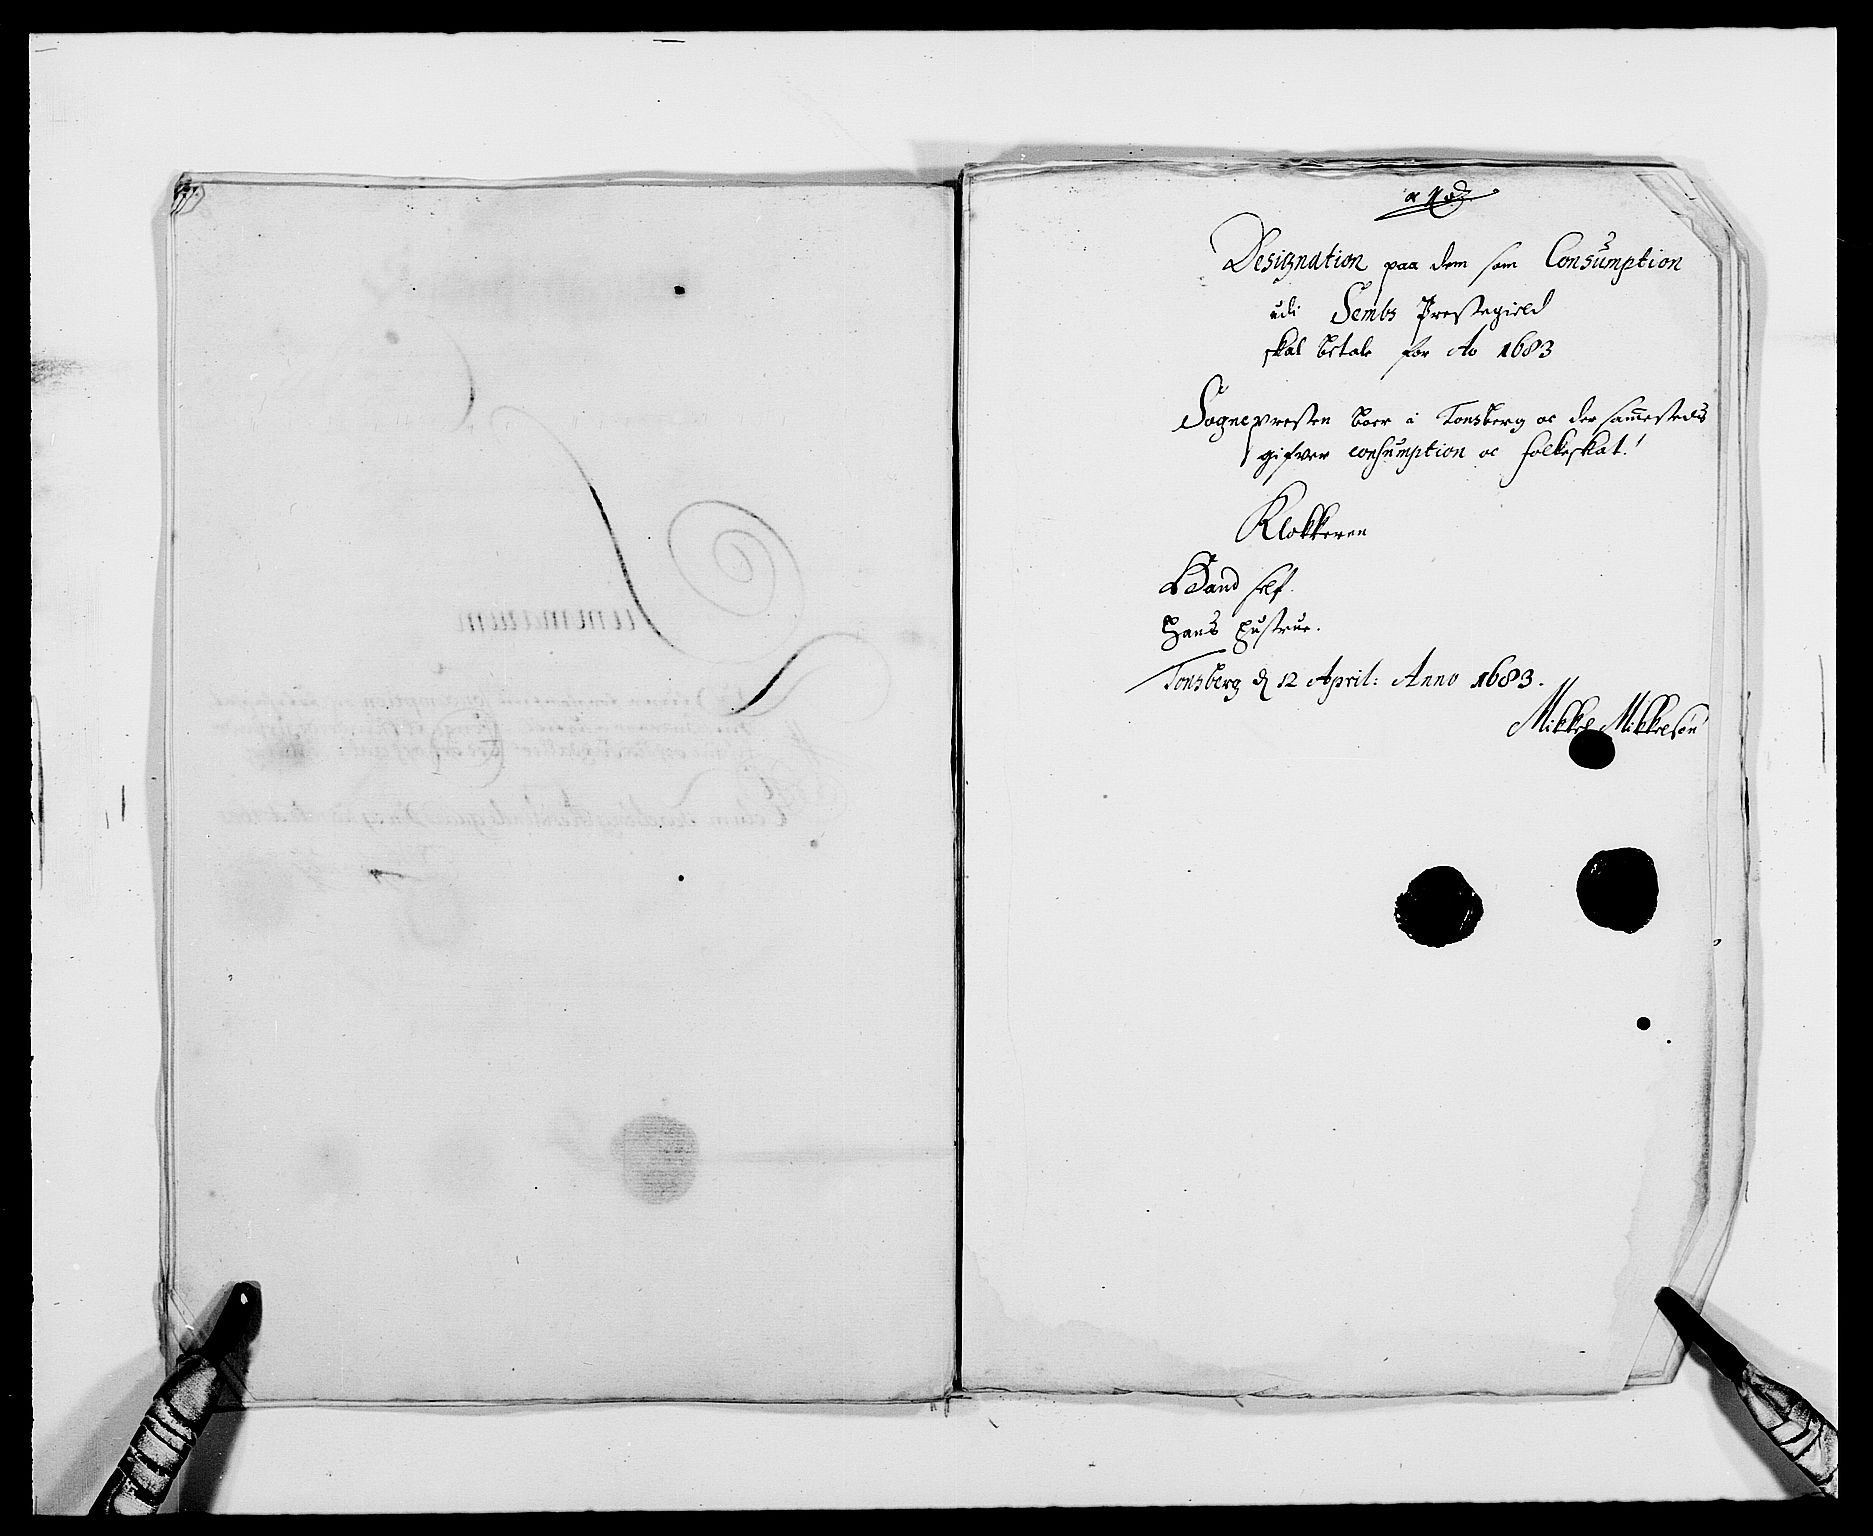 Designation paa dem som Consumption
udi Sembs Prestegield
skal betale for Ao 1683
Sognepresten boer i Tonsberg oc der sammesteds
gifver consumption oc folkeskat.
Klokkeren
Hand self.
Hans Hustrue.
Tonsberg d 12 April: Anno 1683.
Mikkel Mikkelsøn